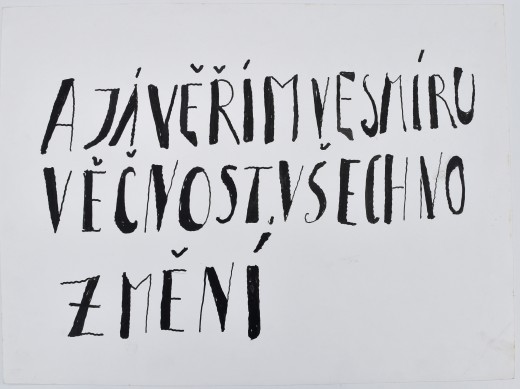 A JÁ VĚŘÍM VESMÍRU
VĚČNOST, VŠECHNO
ZMĚNÍ